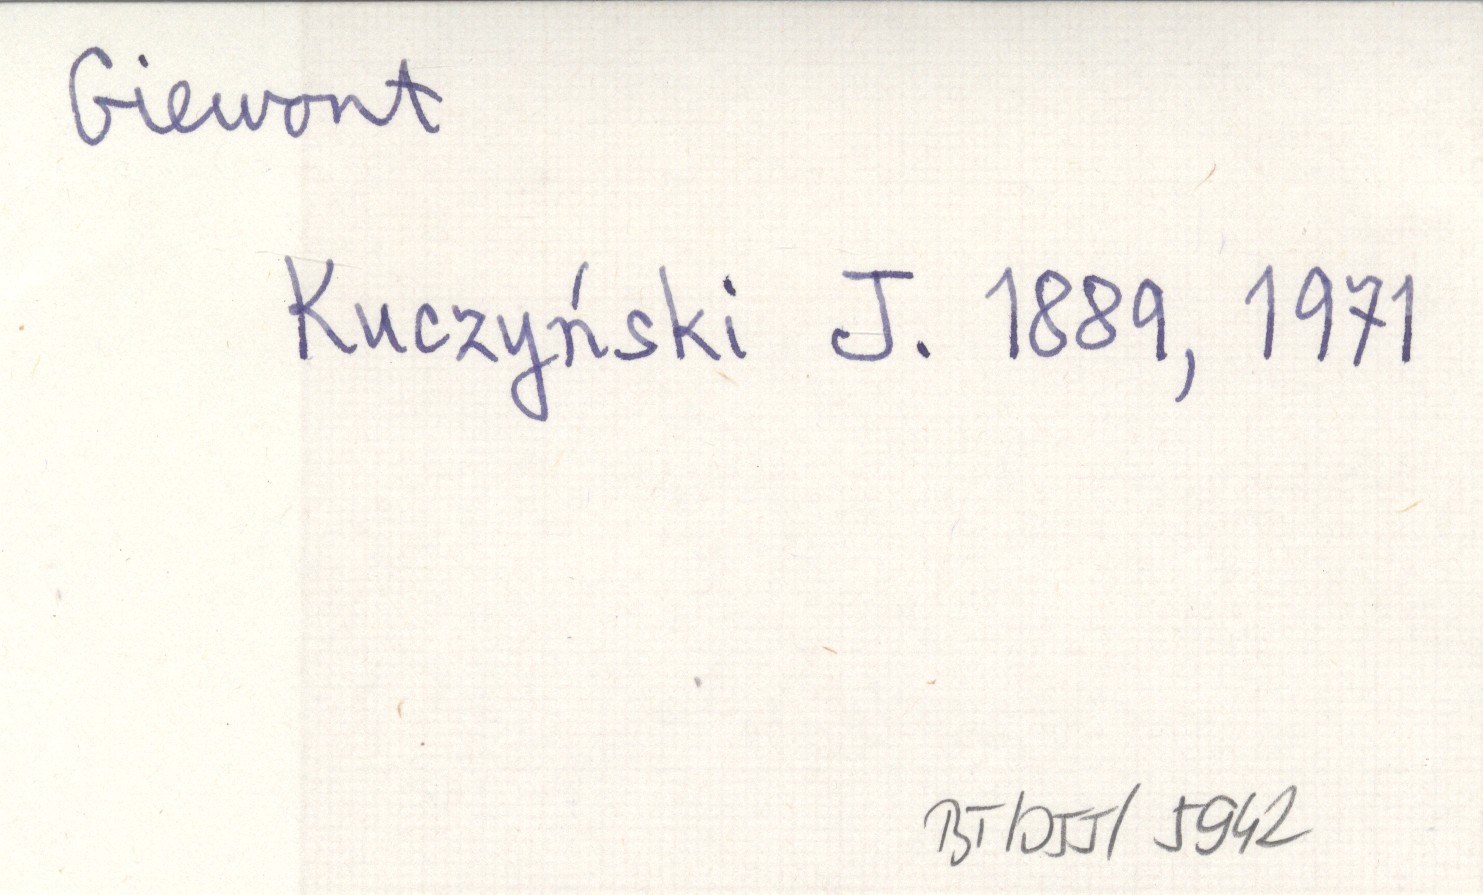 Giewont
Kuczyński J. 1889, 1971
BT/OJJ/ 5942